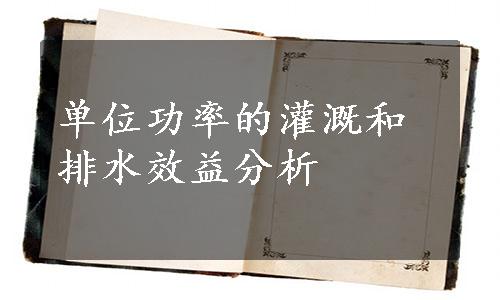 单位功率的灌溉和
排水效益分析